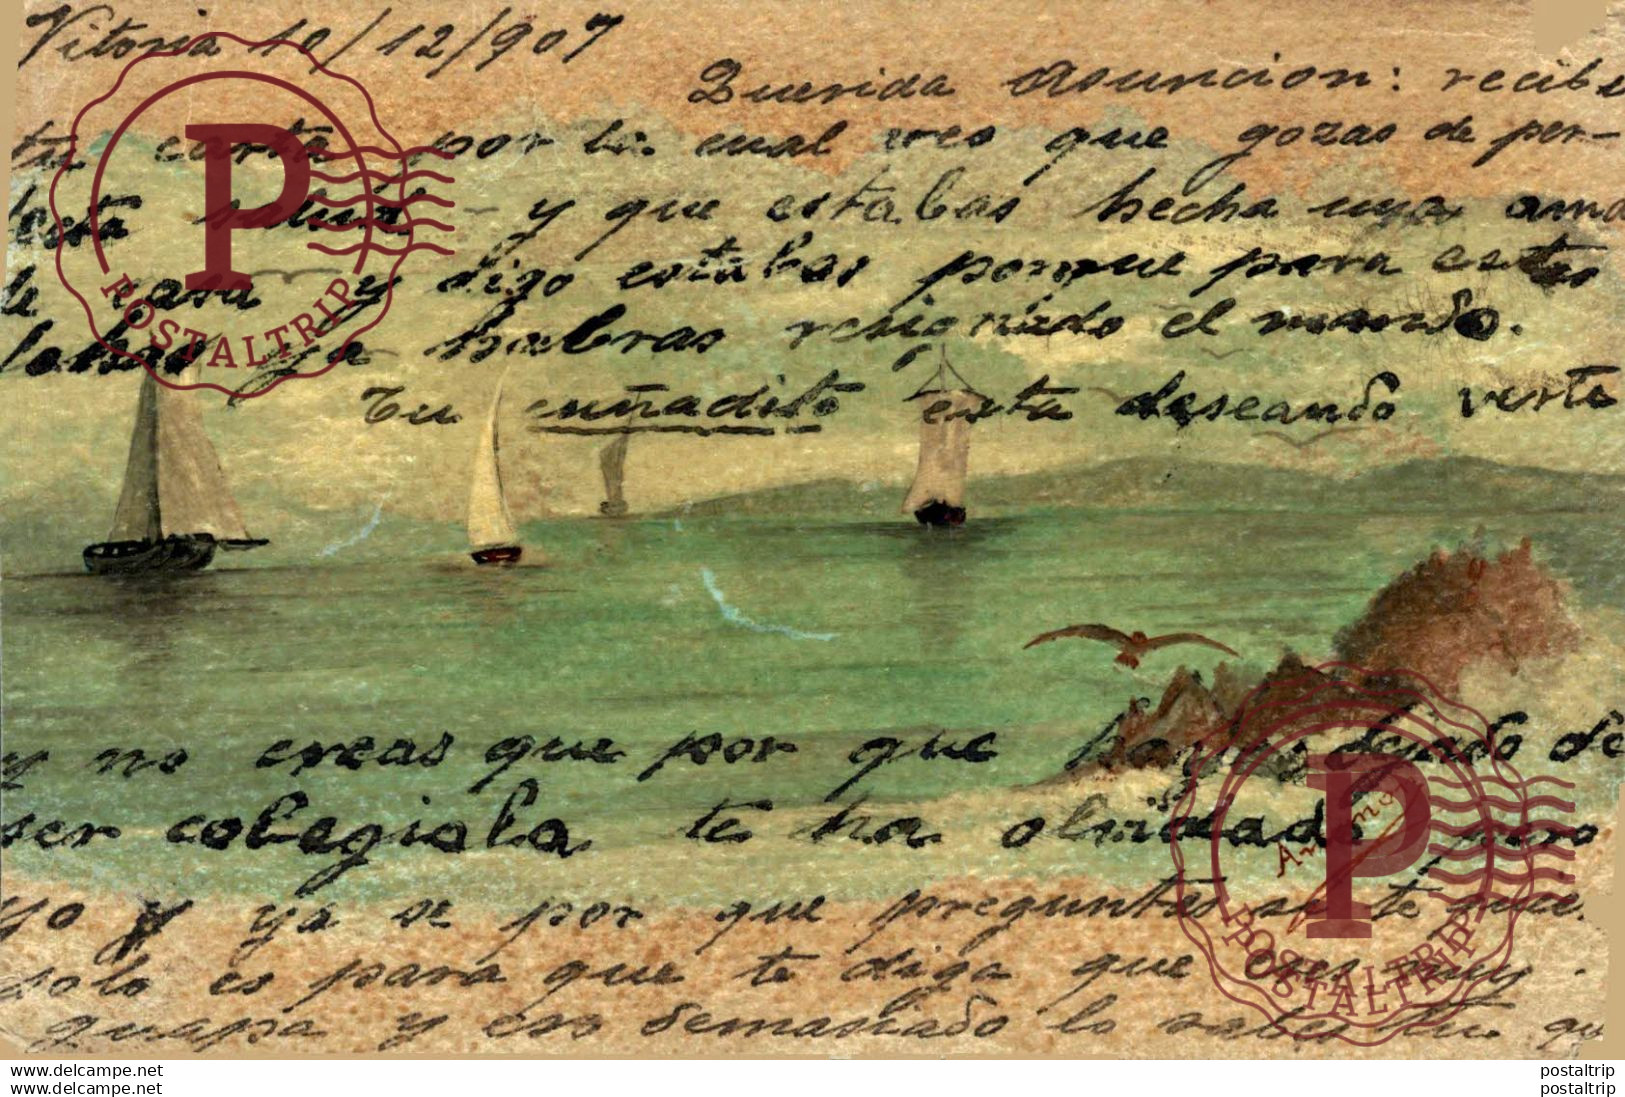 Vitoria 10/12/907
Querida Asuncion: recibi
tu carta por la cual veo que gozas de per-
fecta salud y que estabas hecha una ama
de casa y digo estabas porque para estas
fechas ya habras resignado el mando.
Tu cuñadito esta deseando verte
y no creas que por que hayas dejado de
ser colegiala te ha olvidado pero
yo y ya se por que preguntas si te
solo es para que te diga que eres muy
guapa y eso demasiado lo sabes tu
P
POSTALTRIP
P
POSTALTRIP
postaltrip
postaltrip
postaltrip
postaltrip